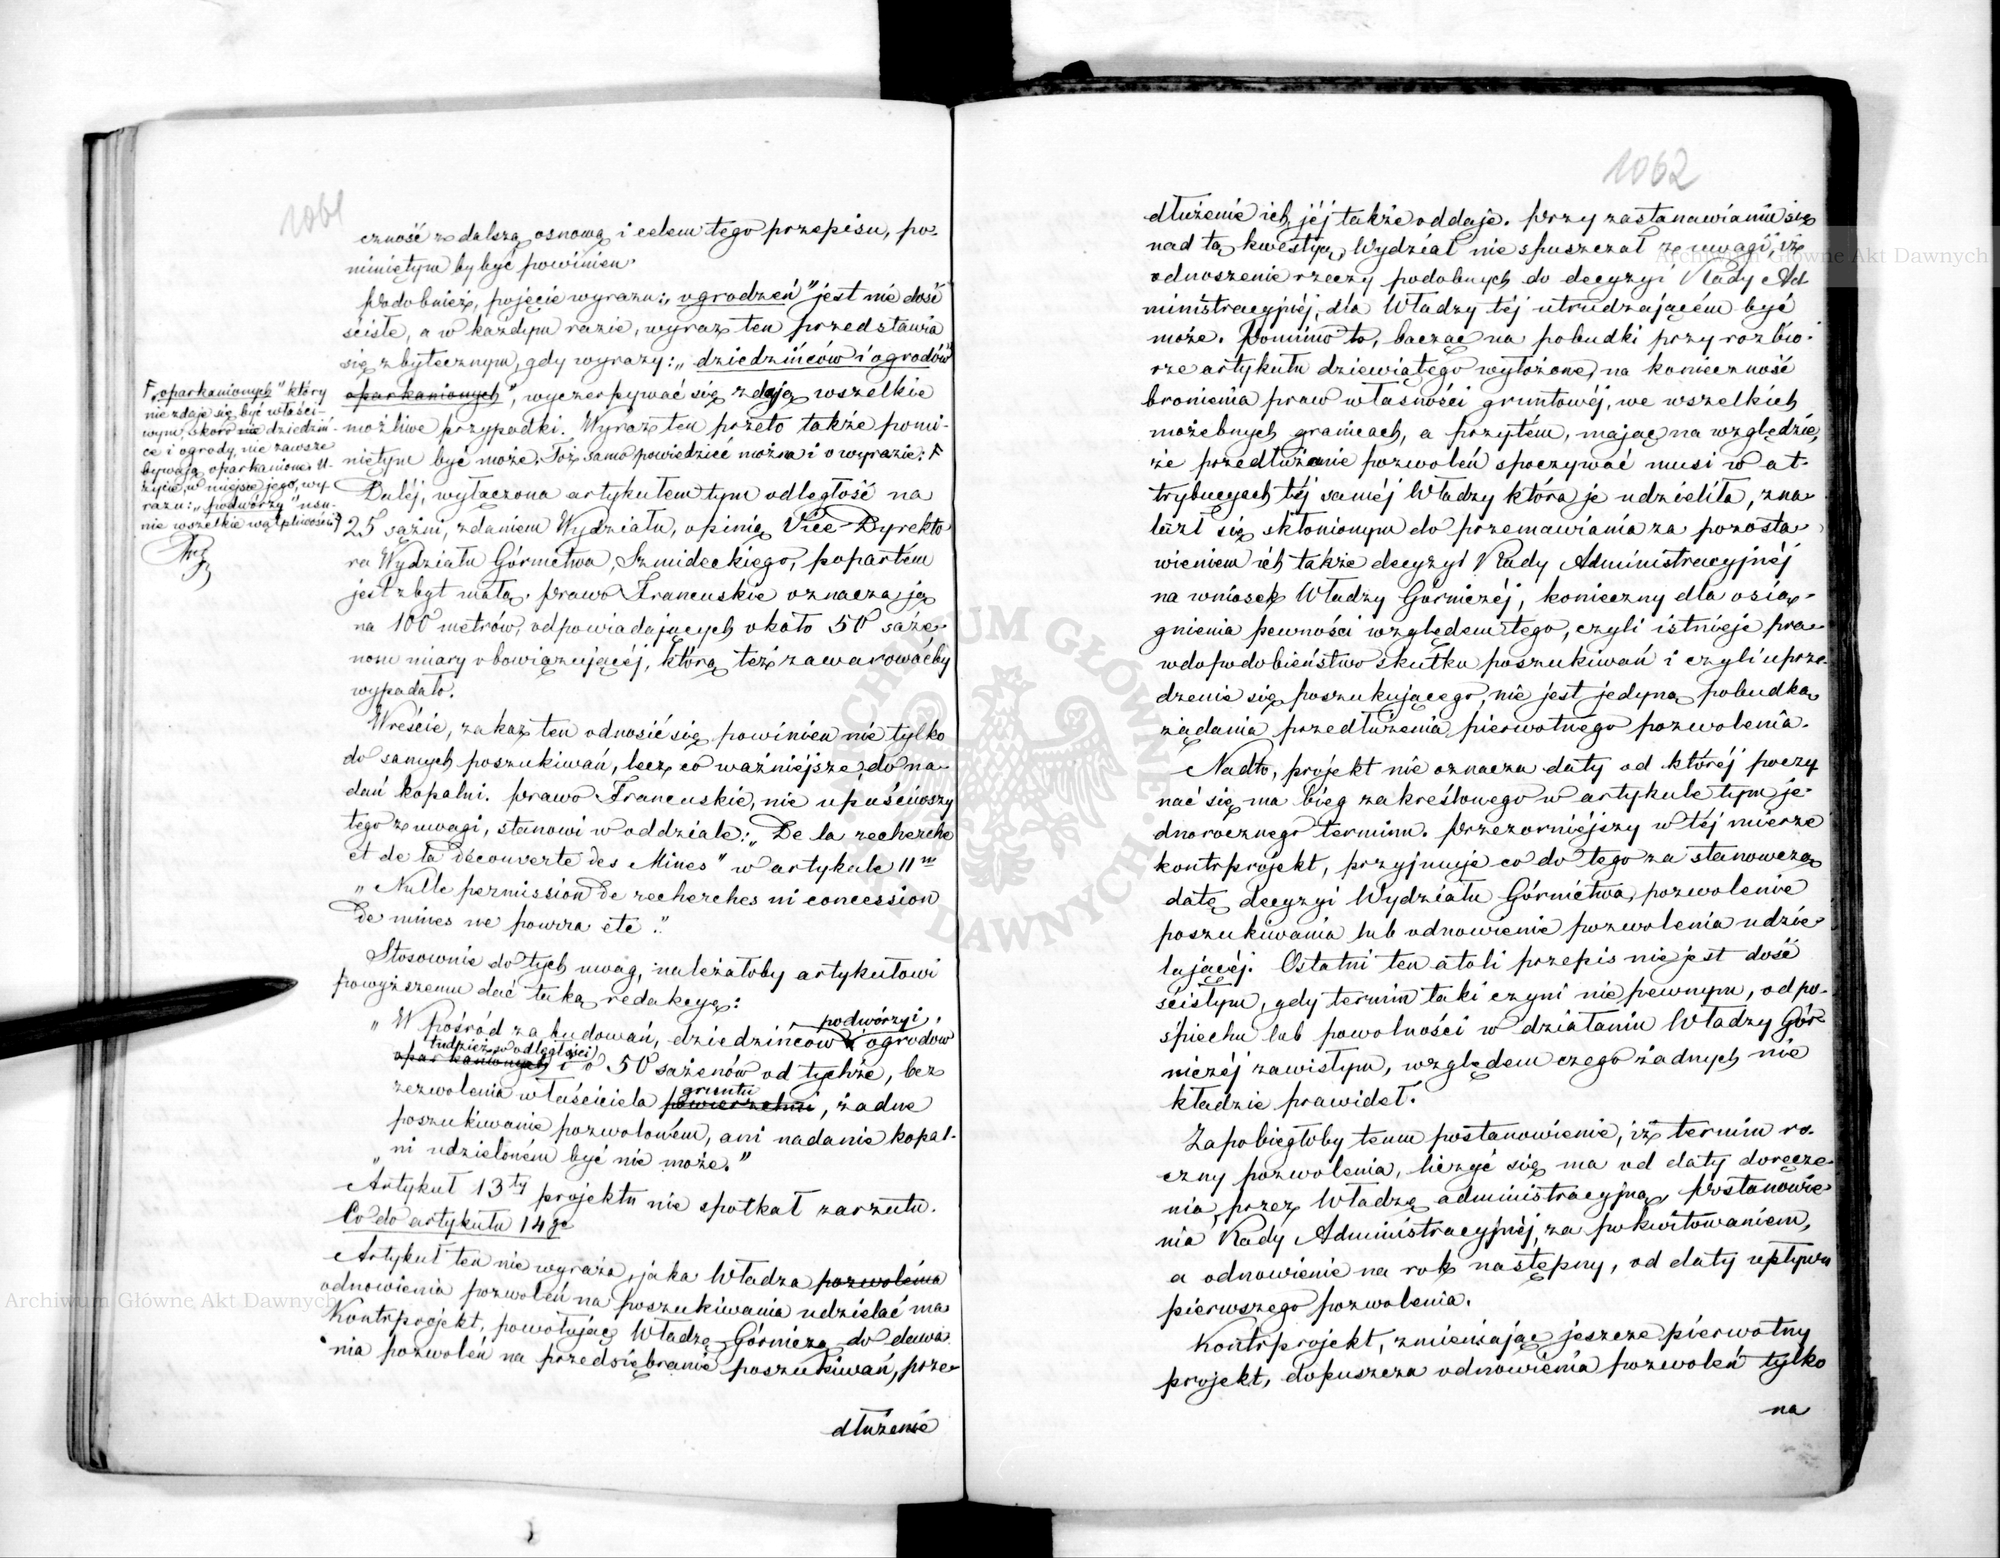 1061
czność z dalszą osnową i celem tego przepisu, po-
miniętym by być powinien.
Podobnież, pojęcie wyrazu: „ogrodzeń" jest nie dość
ściste, a w każdym razie, wyraz ten przedstawia
się zbytecznym, gdy wyrazy: „dziedzińców i ogrodów
oparkanionych", wyczerpywać się zdają wszelkie
możliwe przypadki. Wyraz ten przeto także pomi-
niętym być może. Toż samo powiedzieć można i o wyrazie: F
F „oparkanionych" który
nie zdaje się być właści-
wym, skoro nie dziedziń-
ce i ogrody, nie zawsze
bywają oparkanione. U-
życie, w miejsce jego, wy-
razu: „podwórzy" usu-
nie wszelkie wątpliwości.
Dalej, wytaczona artykułem tym odległość na
25 sążni, zdaniem Wydziału, opinią Vice-Dyrekto
ra Wydziału Górnictwa, Szmideckiego, popartém
jest zbyt małą. Prawo Francuskie oznacza ją
na 100 metrów, odpowiadających około 50 sąże-
nom miary obowiązującéj, którą też zawarowaćby
wypadało.
Wreście, zakaz ten odnosić się powinien nie tylko
do samych poszukiwań, lecz co ważniejsze, do na-
dań kopalni. Prawo Francuskie, nie upuściwszy
tego z uwagi, stanowi w oddziale: „De la recherche
et de la découverte des Mines" w artykule 11m
„Nulle permission de recherches ni concession
de mines ne pourra etc".
Stosownie do tych uwag, należałoby artykułowi
powyższemu dać taką redakcyę:
podwórzy i
„Wpośród zabudowań, dziedzińców i ogrodów
tudzież w odległości
oparkanionych i o 50 sążenów od tychże, bez
gruntu
zezwolenia właściciela powierzchni, żadne
poszukiwanie pozwoloném, ani nadanie kopal-
„ni udzieloném być nie może."
Artykuł 13ty projektu nie spotkał zarzutu.
Co do artykułu 14go
Artykuł ten nie wyraża, jaka Władza pozwolenia
odnowienia pozwoleń na poszukiwania udzielać ma
Kontrprojekt, powołując Władzę Górniczą do dawa
nia pozwoleń na przedsiębranie poszukiwań, prze-
dłużenie
1062
dłużenie ich jéj także oddaje. Przy zastanawianiu się
nad tą kwestyą, Wydział nie spuszczał z uwagi, iż
odnoszenie rzeczy podobnych do decyzyi Rady Ad-
ministracyjnéj, dla Władzy téj utrudzającém być
może. Pomimo to, bacząc na pobudki przy rozbio-
rze artykułu dziewiątego wyłożone, na konieczność
bronienia praw własności gruntowéj, we wszelkich
możebnych granicach, a przytém, mając na względzie,
że przedłużanie pozwoleń spoczywać musi w at-
trybucyach téj saméj Władzy która je udzieliła, zna-
lazł się skłonionym do przemawiania za pozosta-
wieniem ich także decyzyi Rady Administracyjnéj
na wniosek Władzy Górniczéj, konieczny dla osią-
gnienia pewności względem tego, czyli istnieje pra-
wdopodobieństwo skutku poszukiwań i czyli uprze-
dzenie się poszukującego, nie jest jedyną pobudką
żądania przedłużenia pierwotnego pozwolenia.
Nadto, projekt nie oznacza daty od któréj poczy
nać się ma bieg zakreślonego w artykule tym je-
dnorocznego terminu. Przezorniejszy w téj mierze
kontrprojekt, przyjmuje co do tego za stanowczą
datę decyzyi Wydziału Górnictwa, pozwolenie
poszukiwania lub odnowienie pozwolenia udzie-
lającéj. Ostatni ten atoli przepis nie jest dość
ścisłym, gdy termin taki czyni niepewnym, od po-
śpiechu lub powolności w działaniu Władzy Gór-
niczéj zawisłym, względem czego żadnych nie
kładzie prawideł.
Zapobiegłoby temu postanowienie, iż termin ro-
czny pozwolenia, liczyć się ma od daty doręcze-
nia, przez Władzę administracyjną, Postanowie-
nia Rady Administracyjnéj, za pokwitowaniem,
a odnowienie na rok następny, od daty upływu
pierwszego pozwolenia.
Kontrprojekt, zmieniając jeszcze pierwotny
projekt, dopuszcza odnowienia pozwoleń tylko
na
Archiwum Główne Akt Dawnych
Archiwum Główne Akt Dawnych
ARCHIWUM GŁÓWNE AKT DAWNYCH